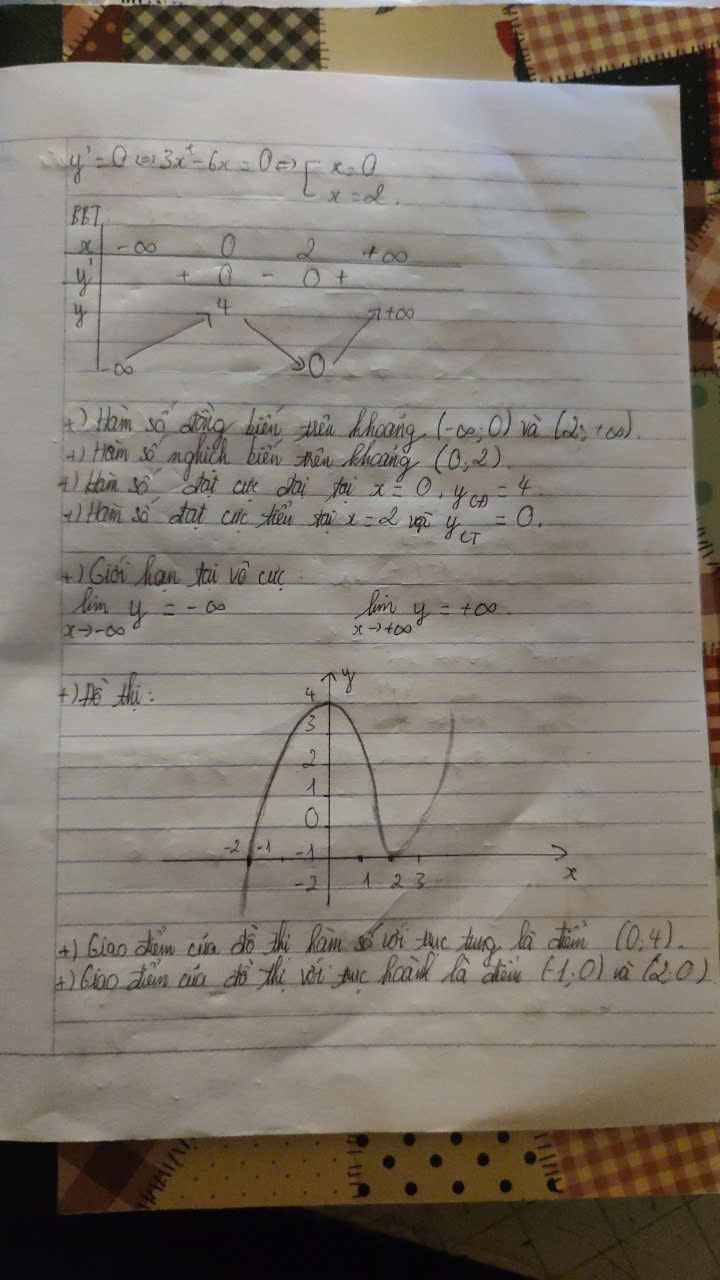 y' = 0 ⇔ 3x² - 6x = 0 ⇔ [ x = 0
x = 2.
BBT
x -∞ 0 2 +∞
y' + 0 - 0 +
y 4 +∞
-∞ 0
+) Hàm số đồng biến trên khoảng (-∞; 0) và (2; +∞).
+) Hàm số nghịch biến trên khoảng (0; 2).
+) Hàm số đạt cực đại tại x = 0, yCĐ = 4.
+) Hàm số đạt cực tiểu tại x = 2 và yCT = 0.
+) Giới hạn tại vô cực
lim y = -∞ lim y = +∞.
x→-∞ x→+∞
+) Đồ thị:
y
4
3
2
1
0
-2 -1 -1
-2 1 2 3 x
+) Giao điểm của đồ thị hàm số với trục tung là điểm (0; 4).
+) Giao điểm của đồ thị với trục hoành là điểm (-1; 0) và (2; 0)